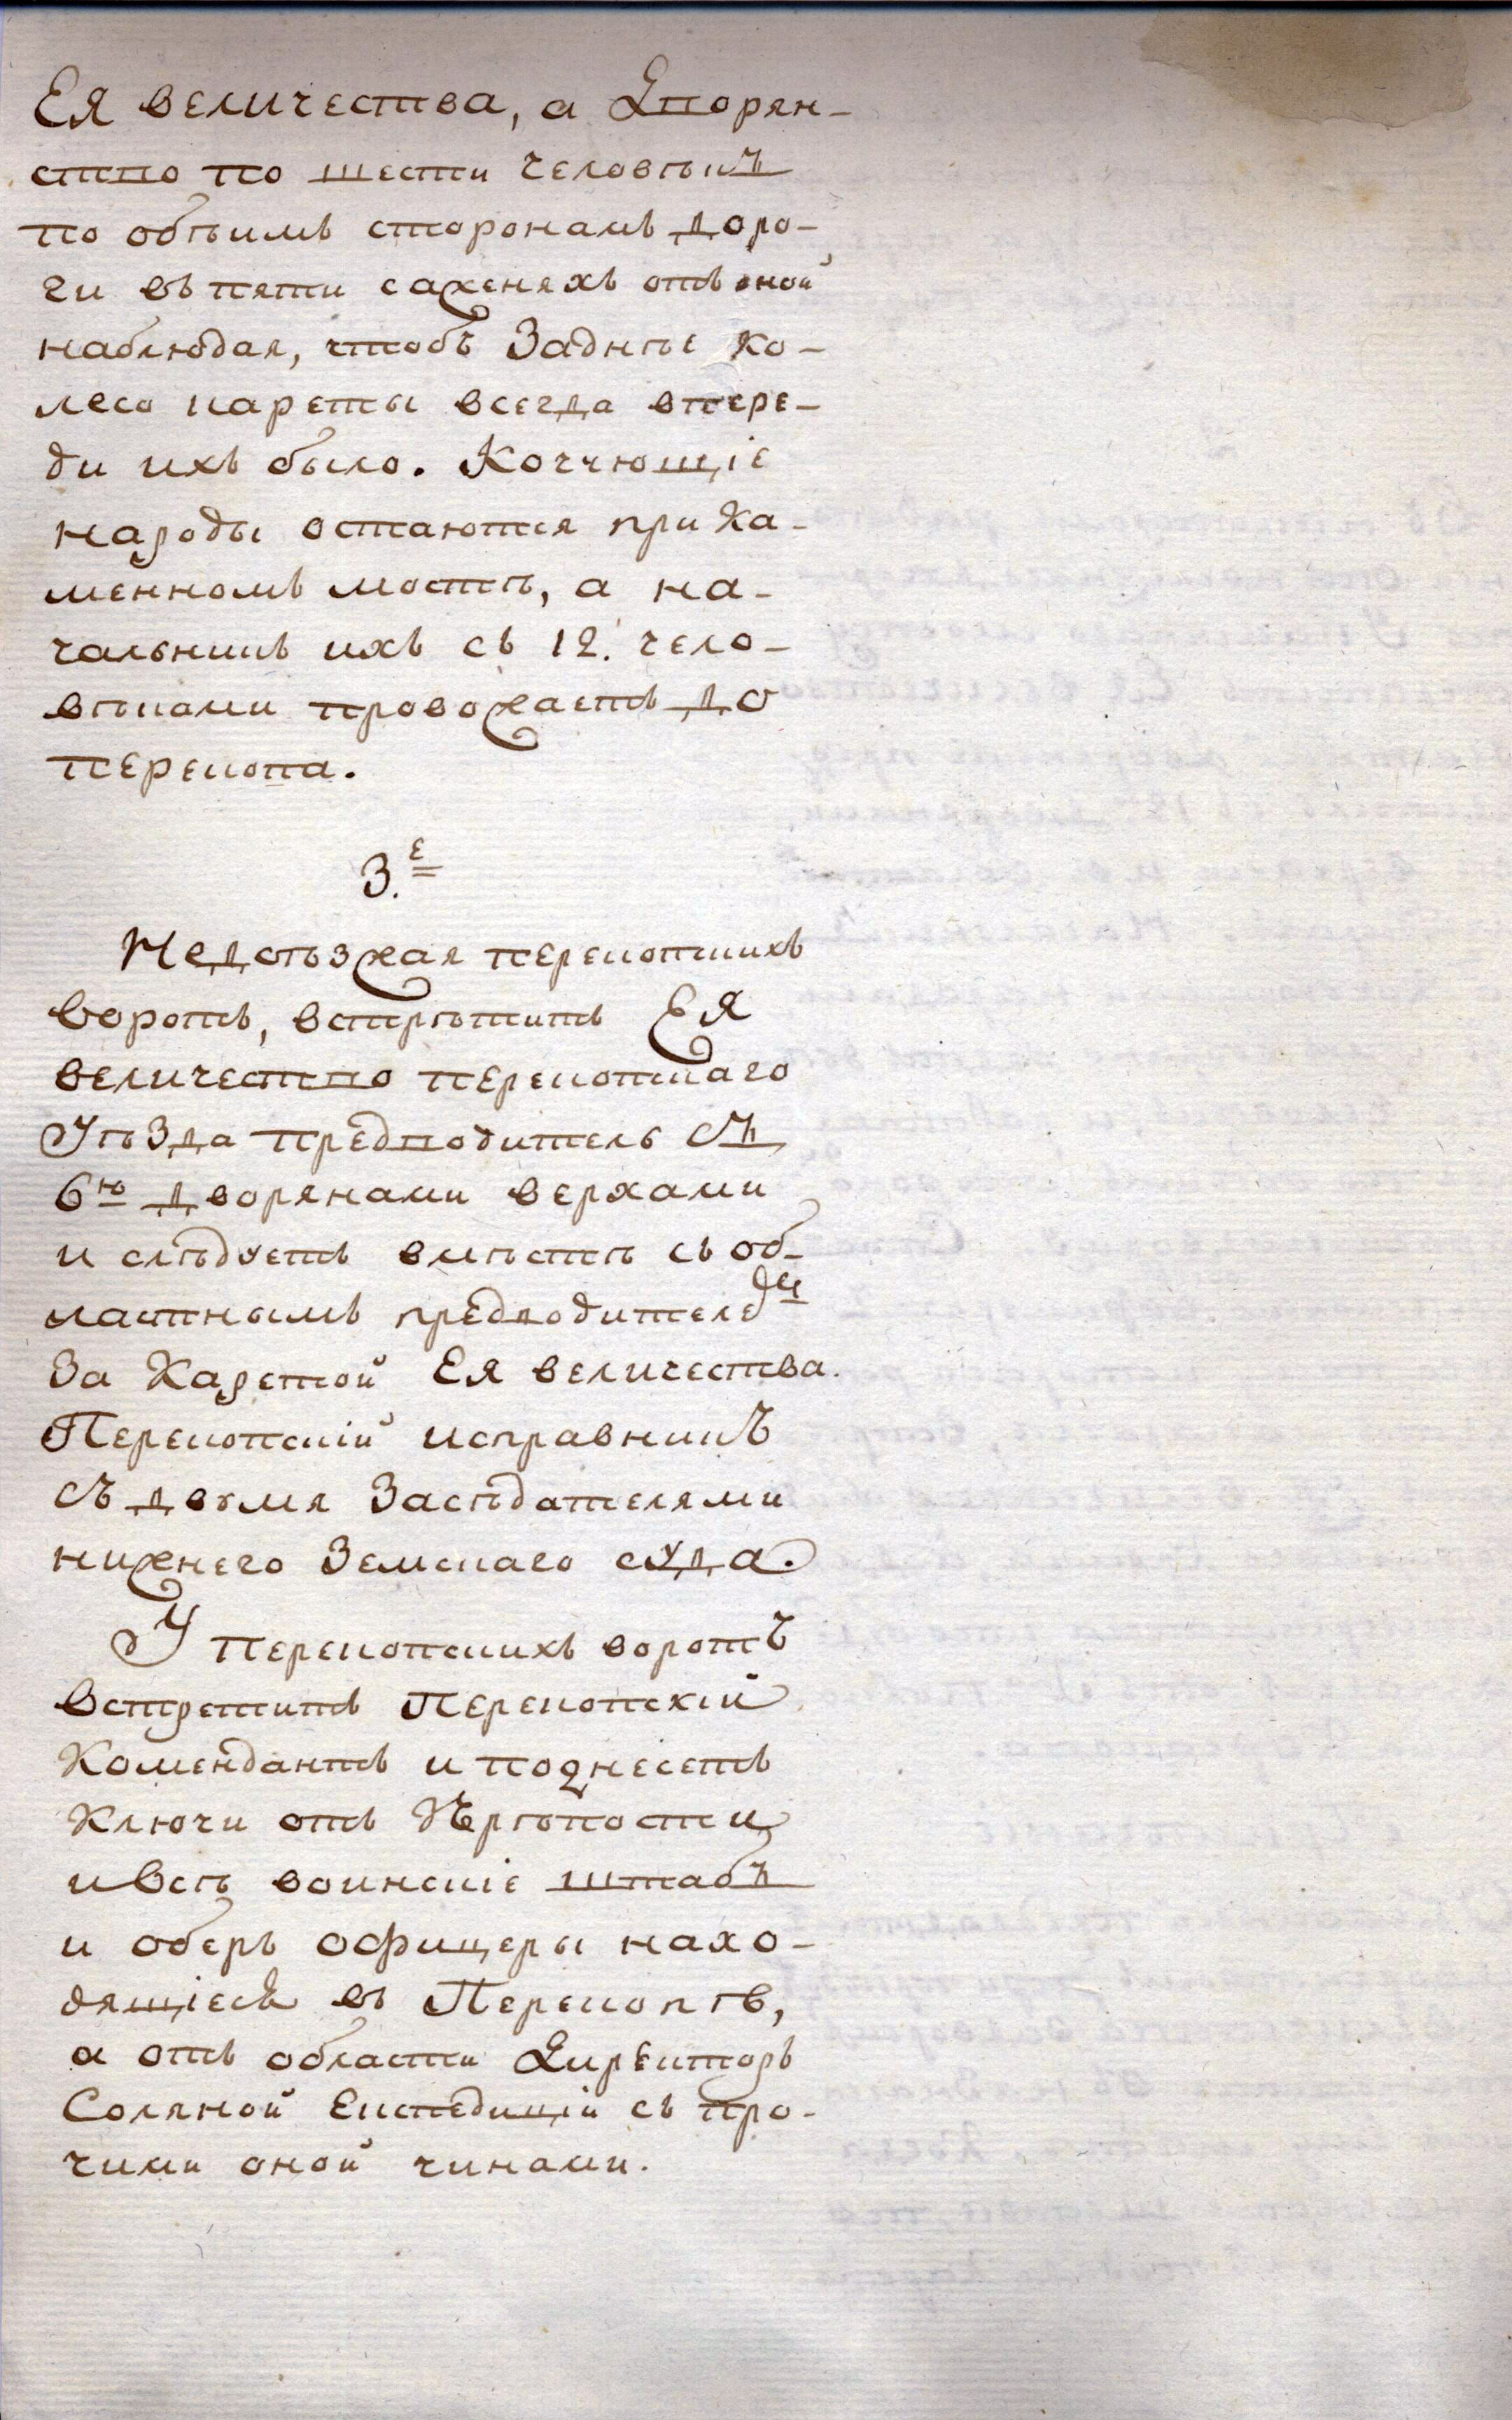 Ея величества, а Дворян-
ство по шести человѣкъ
по обѣимъ сторонамъ доро-
ги въ пяти саженяхъ отъ оной
наблюдая, чтобъ Заднѣе ко-
лесо кареты всегда впере-
ди ихъ было. Кочующіе
народы остаются при Ка-
менномъ мостѣ, а на-
чальникъ ихъ съ 12. чело-
вѣками провожаетъ до
перекопа.
3.е
Недоѣзжая перекопскихъ
воротъ, встрѣтитъ Ея
величество перекопскаго
Уѣзда предводитель съ
6ю дворянами верхами
и слѣдуетъ вмѣстѣ съ об-
ластнымъ предводителемъ
За Каретой Ея величества.
Перекопскій исправникъ
съ двумя Засѣдателями
нижнего Земскаго суда.
У перекопскихъ воротъ
встретитъ Перекопскій
Комендантъ и поднесетъ
Ключи отъ Крѣпости
и всѣ воинскіе штабъ
и оберъ офицеры нахо-
дящіеся въ Перекопѣ,
а отъ области Директоръ
Соляной Експедиціи съ про-
чими оной чинами.